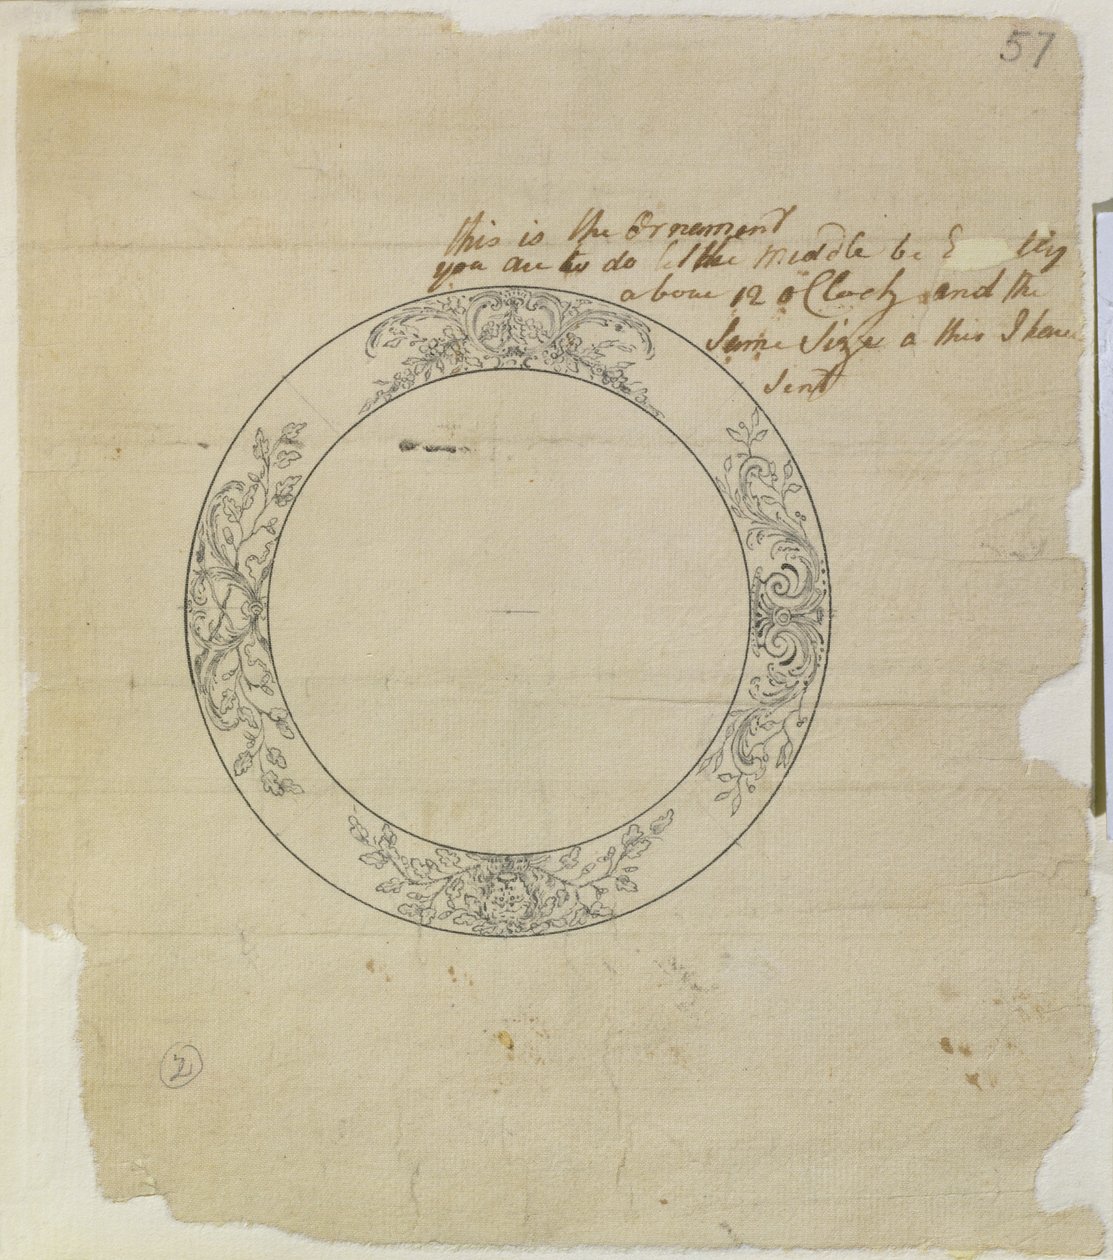 57
this is the Ornament
you are to do let the middle be E tly
above 12 oClock and the
Same Size a this I have
Sent
2